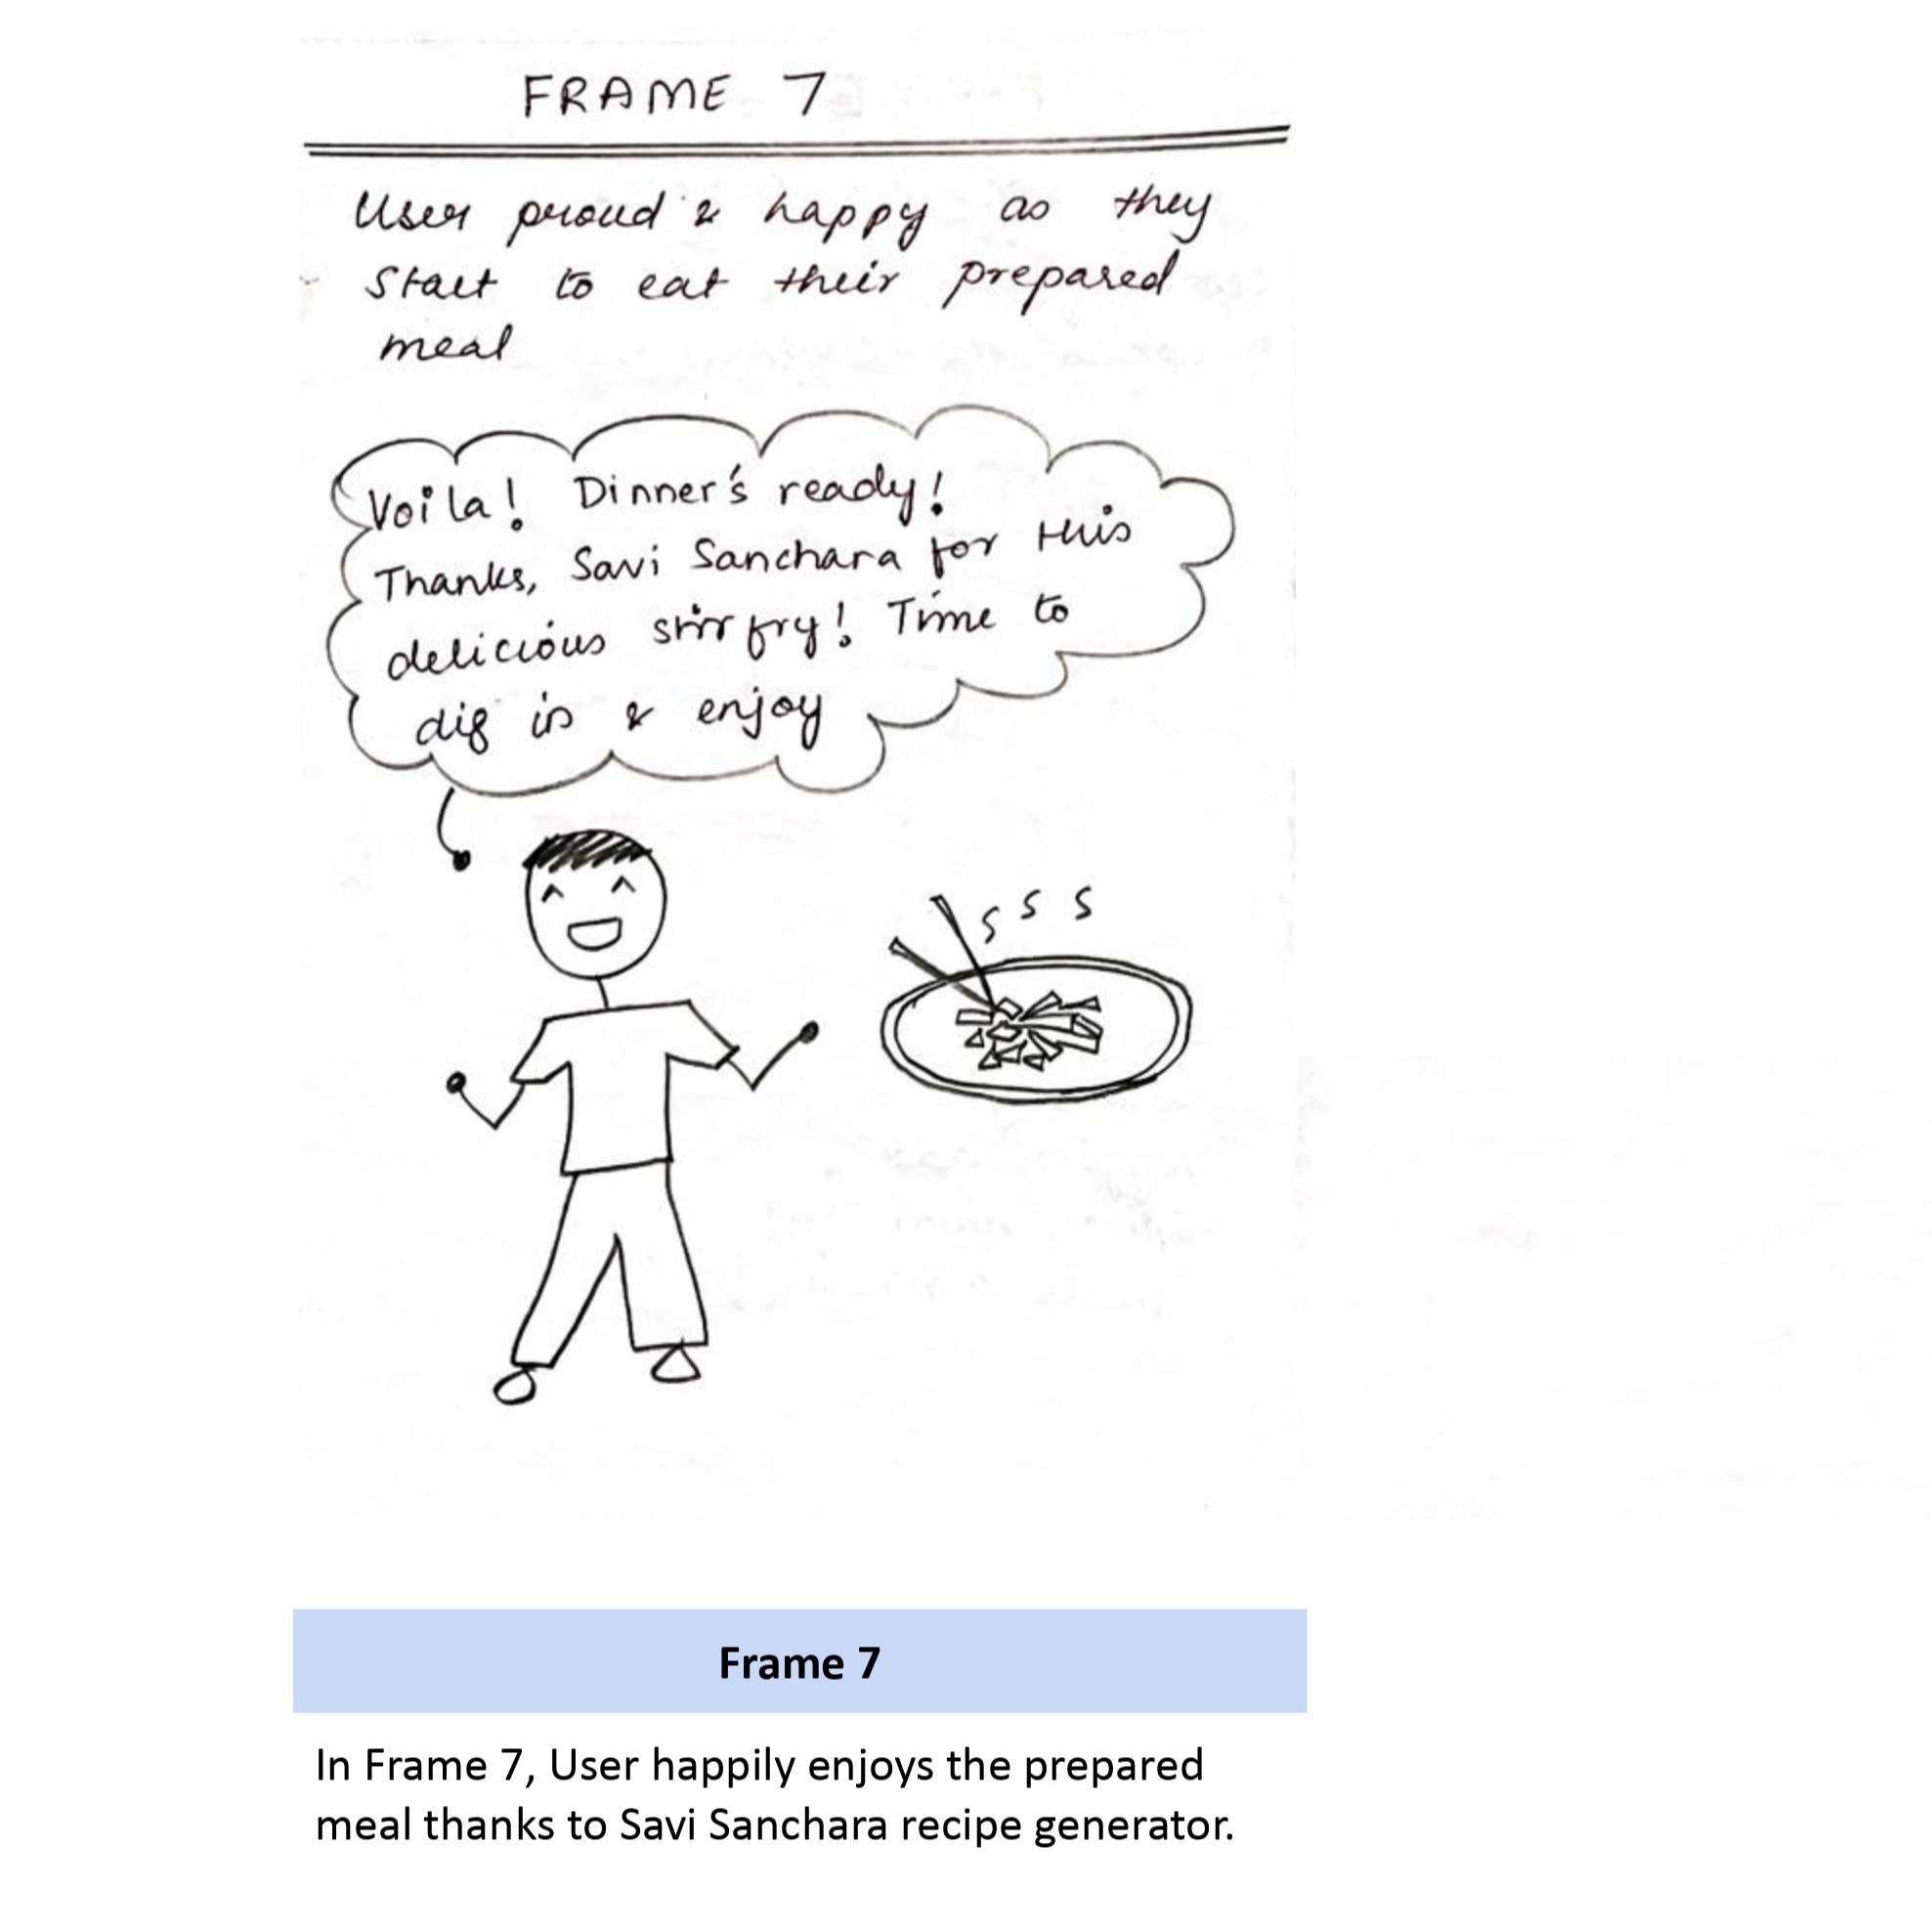 FRAME 7
User proud & happy as they
Start to eat their prepared
meal
Voila! Dinner's ready!
Thanks, Savi Sanchara for this
delicious stir fry! Time to
dig in & enjoy
S S S
Frame 7
In Frame 7, User happily enjoys the prepared
meal thanks to Savi Sanchara recipe generator.